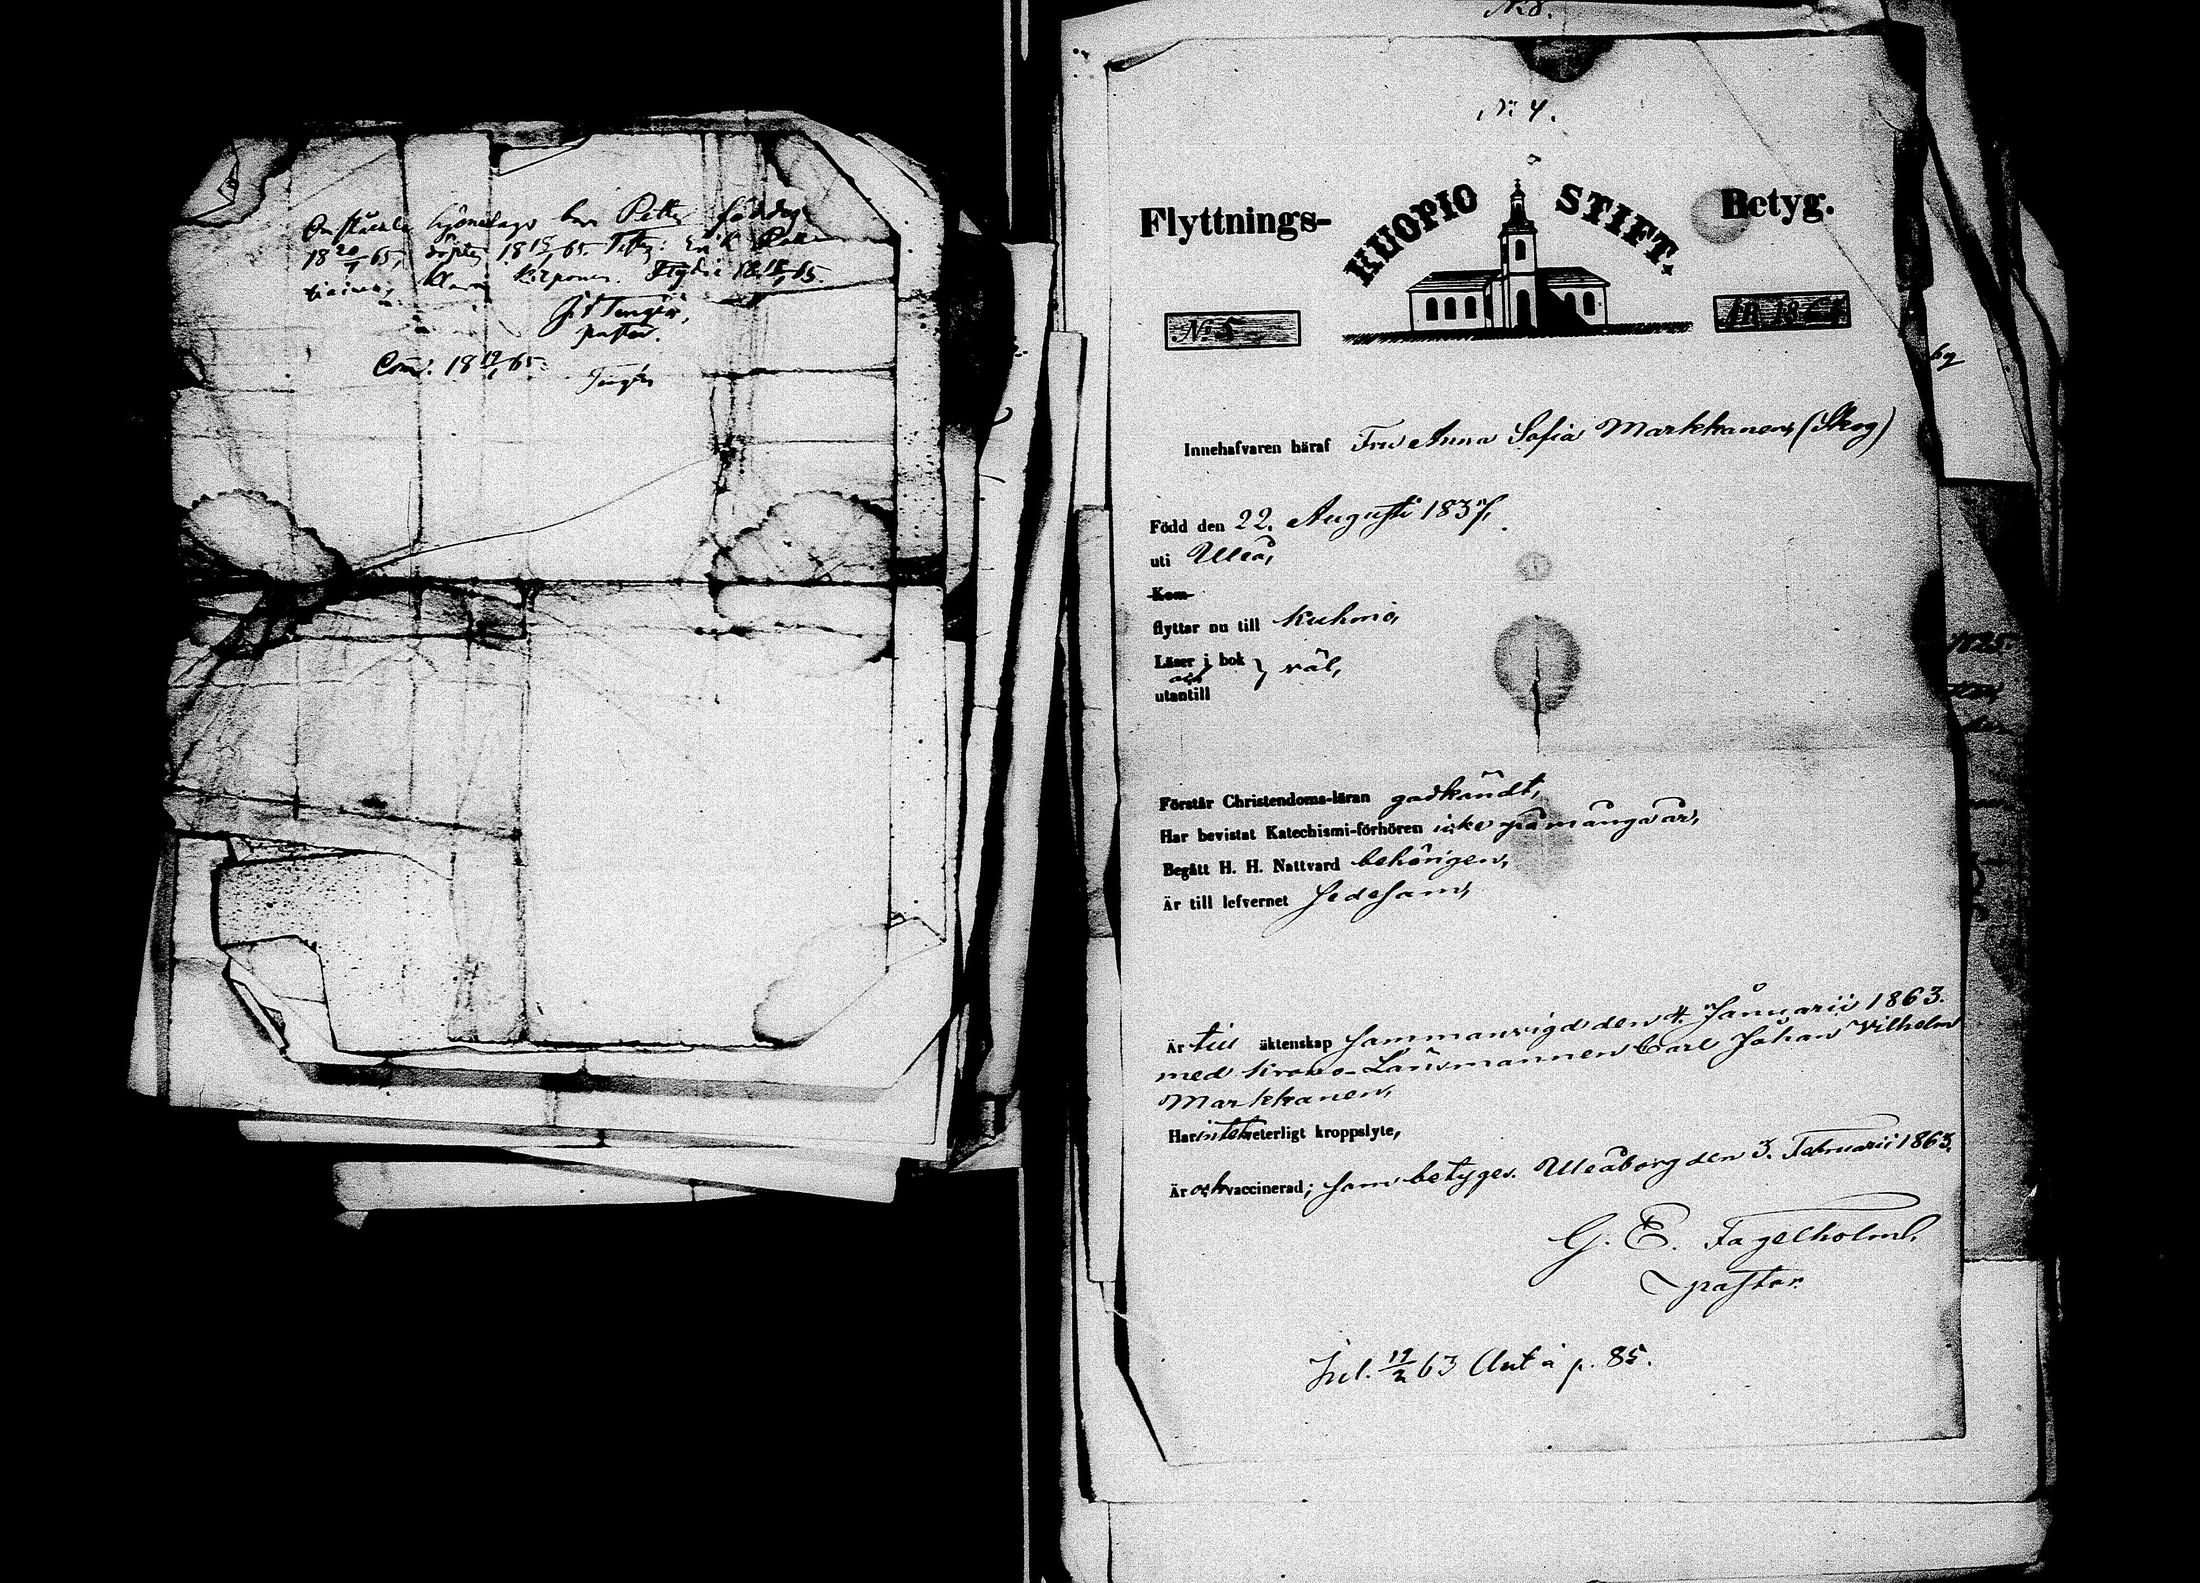 Hjonelags barn Petter född
18 20/1 65, döpt 18 15/1 65. Erik
Kirponen.
pastor.
Com: 18 19/1 65.
No 8.
No 4.
Flyttnings- KUOPIO STIFT. Betyg.
No 5 ÅR 18
Innehafvaren häraf Fru Anna Sofia Markkanen, (Skog)
Född den 22. Augusti 1837,
uti Uleå,
Kom
flyttar nu till Kuhmo,
Läser i bok
och } väl,
utantill
Förstår Christendoms-läran godkändt,
Har bevistat Katechismi-förhören icke på många år,
Begått H. H. Nattvard behörigen,
Är till lefvernet sedesam,
Är till äktenskap sammanvigd den 4. Januarii 1863.
med Krono-Länsmannen Carl Johan Vilhelm
Markkanen,
Har intet veterligt kroppslyte,
Är och vaccinerad; som betyges. Uleåborg den 3. Februarii 1863.
G. E. Fagelholm,
pastor.
19/2 63 p. 85.